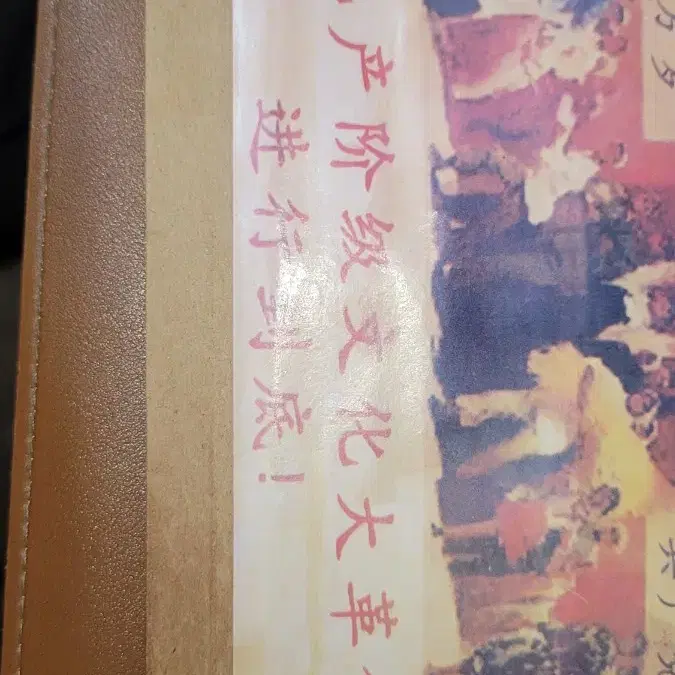 产阶级文化大革
进行到底!